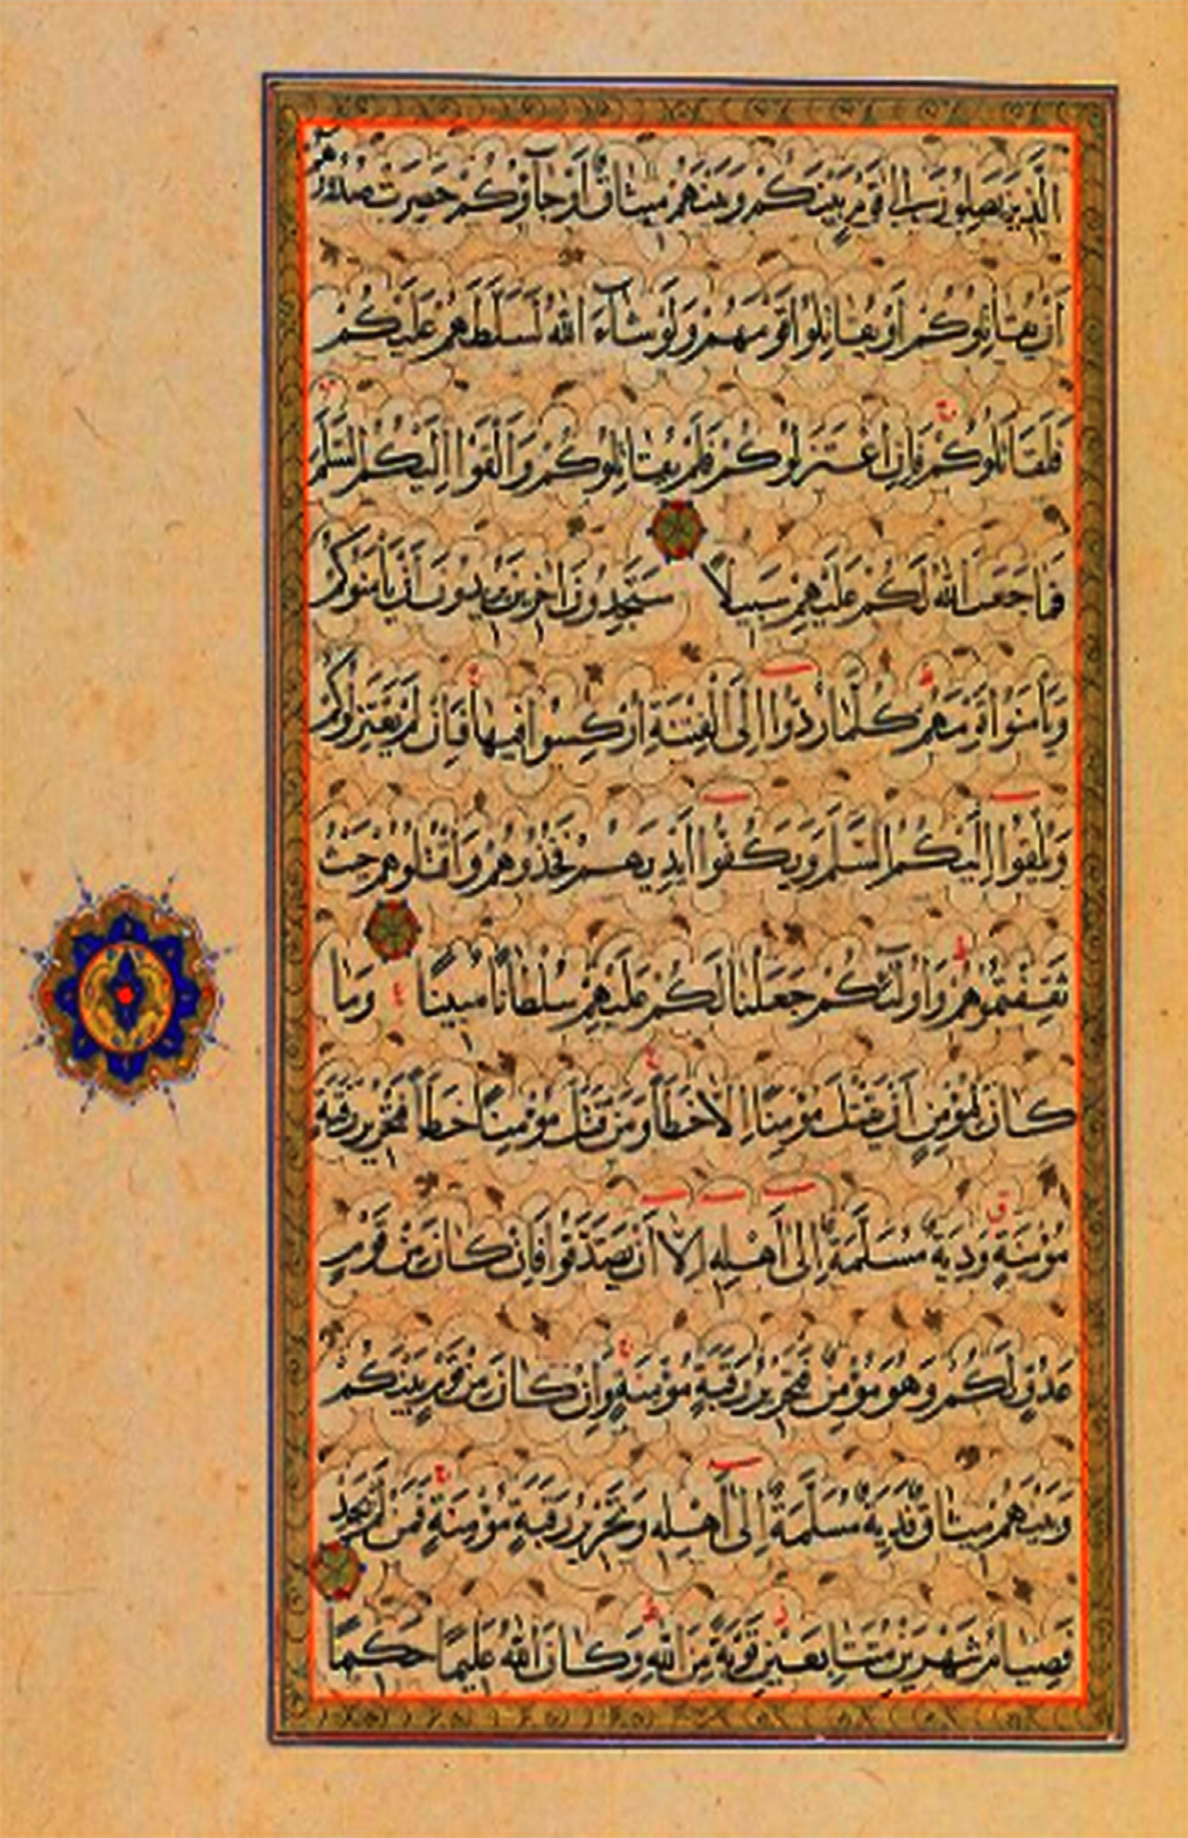 الَّذِينَ يَصِلُونَ إِلَىٰ قَوْمٍ بَيْنَكُمْ وَبَيْنَهُمْ مِيثَاقٌ أَوْ جَاؤُكُمْ حَصِرَتْ صُدُورُهُمْ
أَنْ يُقَاتِلُوكُمْ أَوْ يُقَاتِلُوا قَوْمَهُمْ وَلَوْ شَاءَ اللَّهُ لَسَلَّطَهُمْ عَلَيْكُمْ
فَلَقَاتَلُوكُمْ فَإِنِ اعْتَزَلُوكُمْ فَلَمْ يُقَاتِلُوكُمْ وَأَلْقَوْا إِلَيْكُمُ السَّلَمَ
فَمَا جَعَلَ اللَّهُ لَكُمْ عَلَيْهِمْ سَبِيلًا سَتَجِدُونَ آخَرِينَ يُرِيدُونَ أَنْ يَأْمَنُوكُمْ
وَيَأْمَنُوا قَوْمَهُمْ كُلَّمَا رُدُّوا إِلَى الْفِتْنَةِ أُرْكِسُوا فِيهَا فَإِنْ لَمْ يَعْتَزِلُوكُمْ
وَيُلْقُوا إِلَيْكُمُ السَّلَمَ وَيَكُفُّوا أَيْدِيَهُمْ فَخُذُوهُمْ وَاقْتُلُوهُمْ حَيْثُ
ثَقِفْتُمُوهُمْ وَأُولَٰئِكُمْ جَعَلْنَا لَكُمْ عَلَيْهِمْ سُلْطَانًا مُبِينًا وَمَا
كَانَ لِمُؤْمِنٍ أَنْ يَقْتُلَ مُؤْمِنًا إِلَّا خَطَأً وَمَنْ قَتَلَ مُؤْمِنًا خَطَأً فَتَحْرِيرُ رَقَبَةٍ
مُؤْمِنَةٍ وَدِيَةٌ مُسَلَّمَةٌ إِلَىٰ أَهْلِهِ إِلَّا أَنْ يَصَّدَّقُوا فَإِنْ كَانَ مِنْ قَوْمٍ
عَدُوٍّ لَكُمْ وَهُوَ مُؤْمِنٌ فَتَحْرِيرُ رَقَبَةٍ مُؤْمِنَةٍ وَإِنْ كَانَ مِنْ قَوْمٍ بَيْنَكُمْ
وَبَيْنَهُمْ مِيثَاقٌ فَدِيَةٌ مُسَلَّمَةٌ إِلَىٰ أَهْلِهِ وَتَحْرِيرُ رَقَبَةٍ مُؤْمِنَةٍ فَمَنْ لَمْ يَجِدْ
فَصِيَامُ شَهْرَيْنِ مُتَتَابِعَيْنِ تَوْبَةً مِنَ اللَّهِ وَكَانَ اللَّهُ عَلِيمًا حَكِيمًا